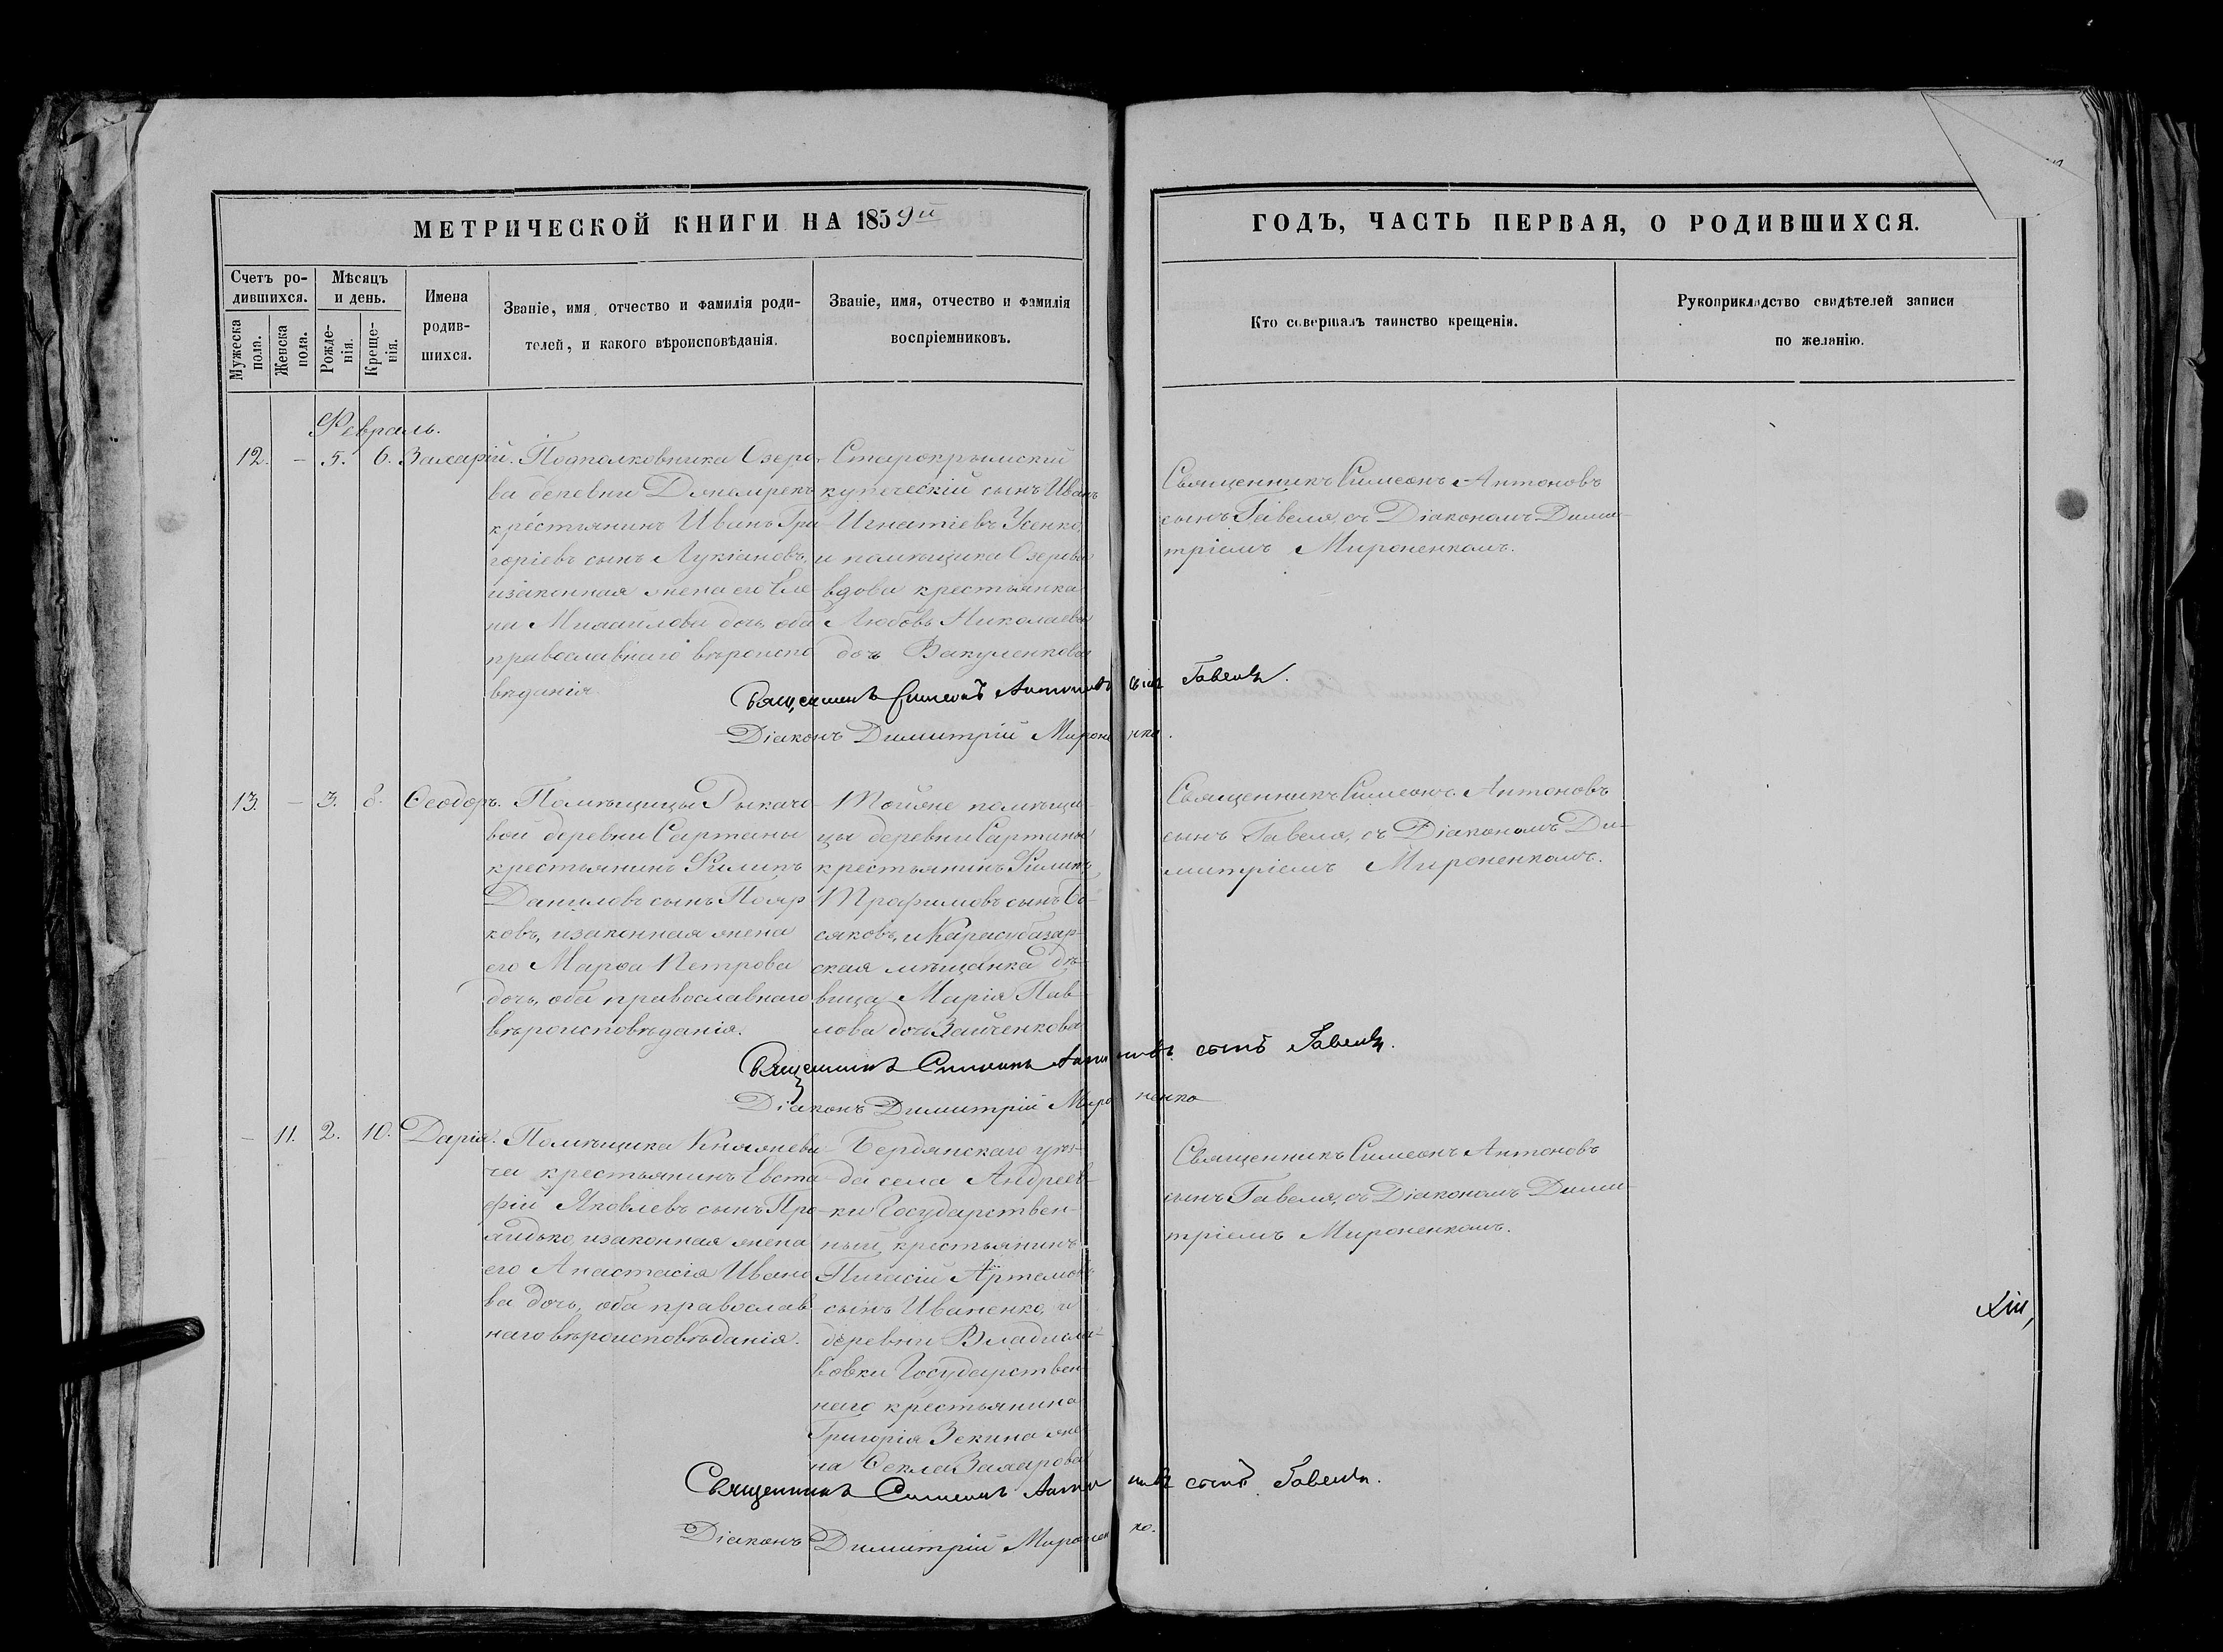 МЕТРИЧЕСКОЙ КНИГИ НА 1859й
Счетъ ро-
дившихся.
Мужеска
пола.
Женска
пола.
Мѣсяцъ
и день.
Рожде-
нія.
Креще-
нія.
Имена
родив-
шихся.
Званіе, имя, отчество и фамилія роди-
телей, и какого вѣроисповѣданія.
Званіе, имя, отчество и фамилія
воспріемниковъ.
ГОДЪ, ЧАСТЬ ПЕРВАЯ, О РОДИВШИХСЯ.
Кто совершалъ таинство крещенія.
Рукоприкладство свидѣтелей записи
по желанію.
Февраль.
12. - 5. 6. Захарій.
Подполковника Озеро-
ва деревни
крестьянинъ Иванъ Гри-
горіевъ сынъ Лукіановъ,
и законная жена его Еле
на Михайлова дочь, оба
православнаго вѣроиспо
вѣданія
Старокрымскій
купеческій сынъ Иванъ
Игнатіевъ Усенко
и помѣщика Озерова
вдова крестьянка
Любовь Николаева
дочь Вакуленкова
Священникъ Симеонъ Антоновъ
сынъ Гавеля, съ Діакономъ Дими-
тріемъ Мироненкомъ.
Священникъ Симеонъ Антоновъ сынъ Гавеля.
Діаконъ Димитрій Мироненко.
13. - 3. 8. Ѳеодоръ.
Помѣщицы Рыкачо-
вой деревни Сартаны
крестьянинъ Филипъ
Даниловъ сынъ Пояр
ковъ, и законная жена
его Марѳа Петрова
дочь, оба православнаго
вѣроисповѣданія.
Тойоже помѣщи-
цы деревни Сартаны
крестьянинъ Филипъ
Трафимовъ сынъ
сяковъ, и Карасубазар-
ская мѣщанка дѣ-
вица Марія Пав-
лова дочь Зайченкова
Священникъ Симеонъ Антоновъ
сынъ Гавеля, съ Діакономъ Ди-
митріемъ Мироненкомъ.
Священникъ Симеонъ Антоновъ сынъ Гавеля.
Діаконъ Димитрій Мироненко
- 11. 2. 10. Дарія.
Помѣщика Княжеви-
ча крестьянинъ Евста
фій Яковлевъ сынъ Про-
и законная жена
его Анастасія Ивано
ва дочь, оба православ
наго вѣроисповѣданія.
Бердянскаго уѣз-
да села Андреев-
ки Государствен-
ный крестьянинъ
Артемовъ
сынъ Иваненко, и
деревни Владисла-
вовки Государствен-
наго крестьянина
Григорія Зекина же-
на Ѳекла Захарова
Священникъ Симеонъ Антоновъ
сынъ Гавеля, съ Діакономъ Дими-
тріемъ Мироненкомъ.
Священникъ Симеонъ Антоновъ сынъ Гавеля.
Діаконъ Димитрій Мироненко.